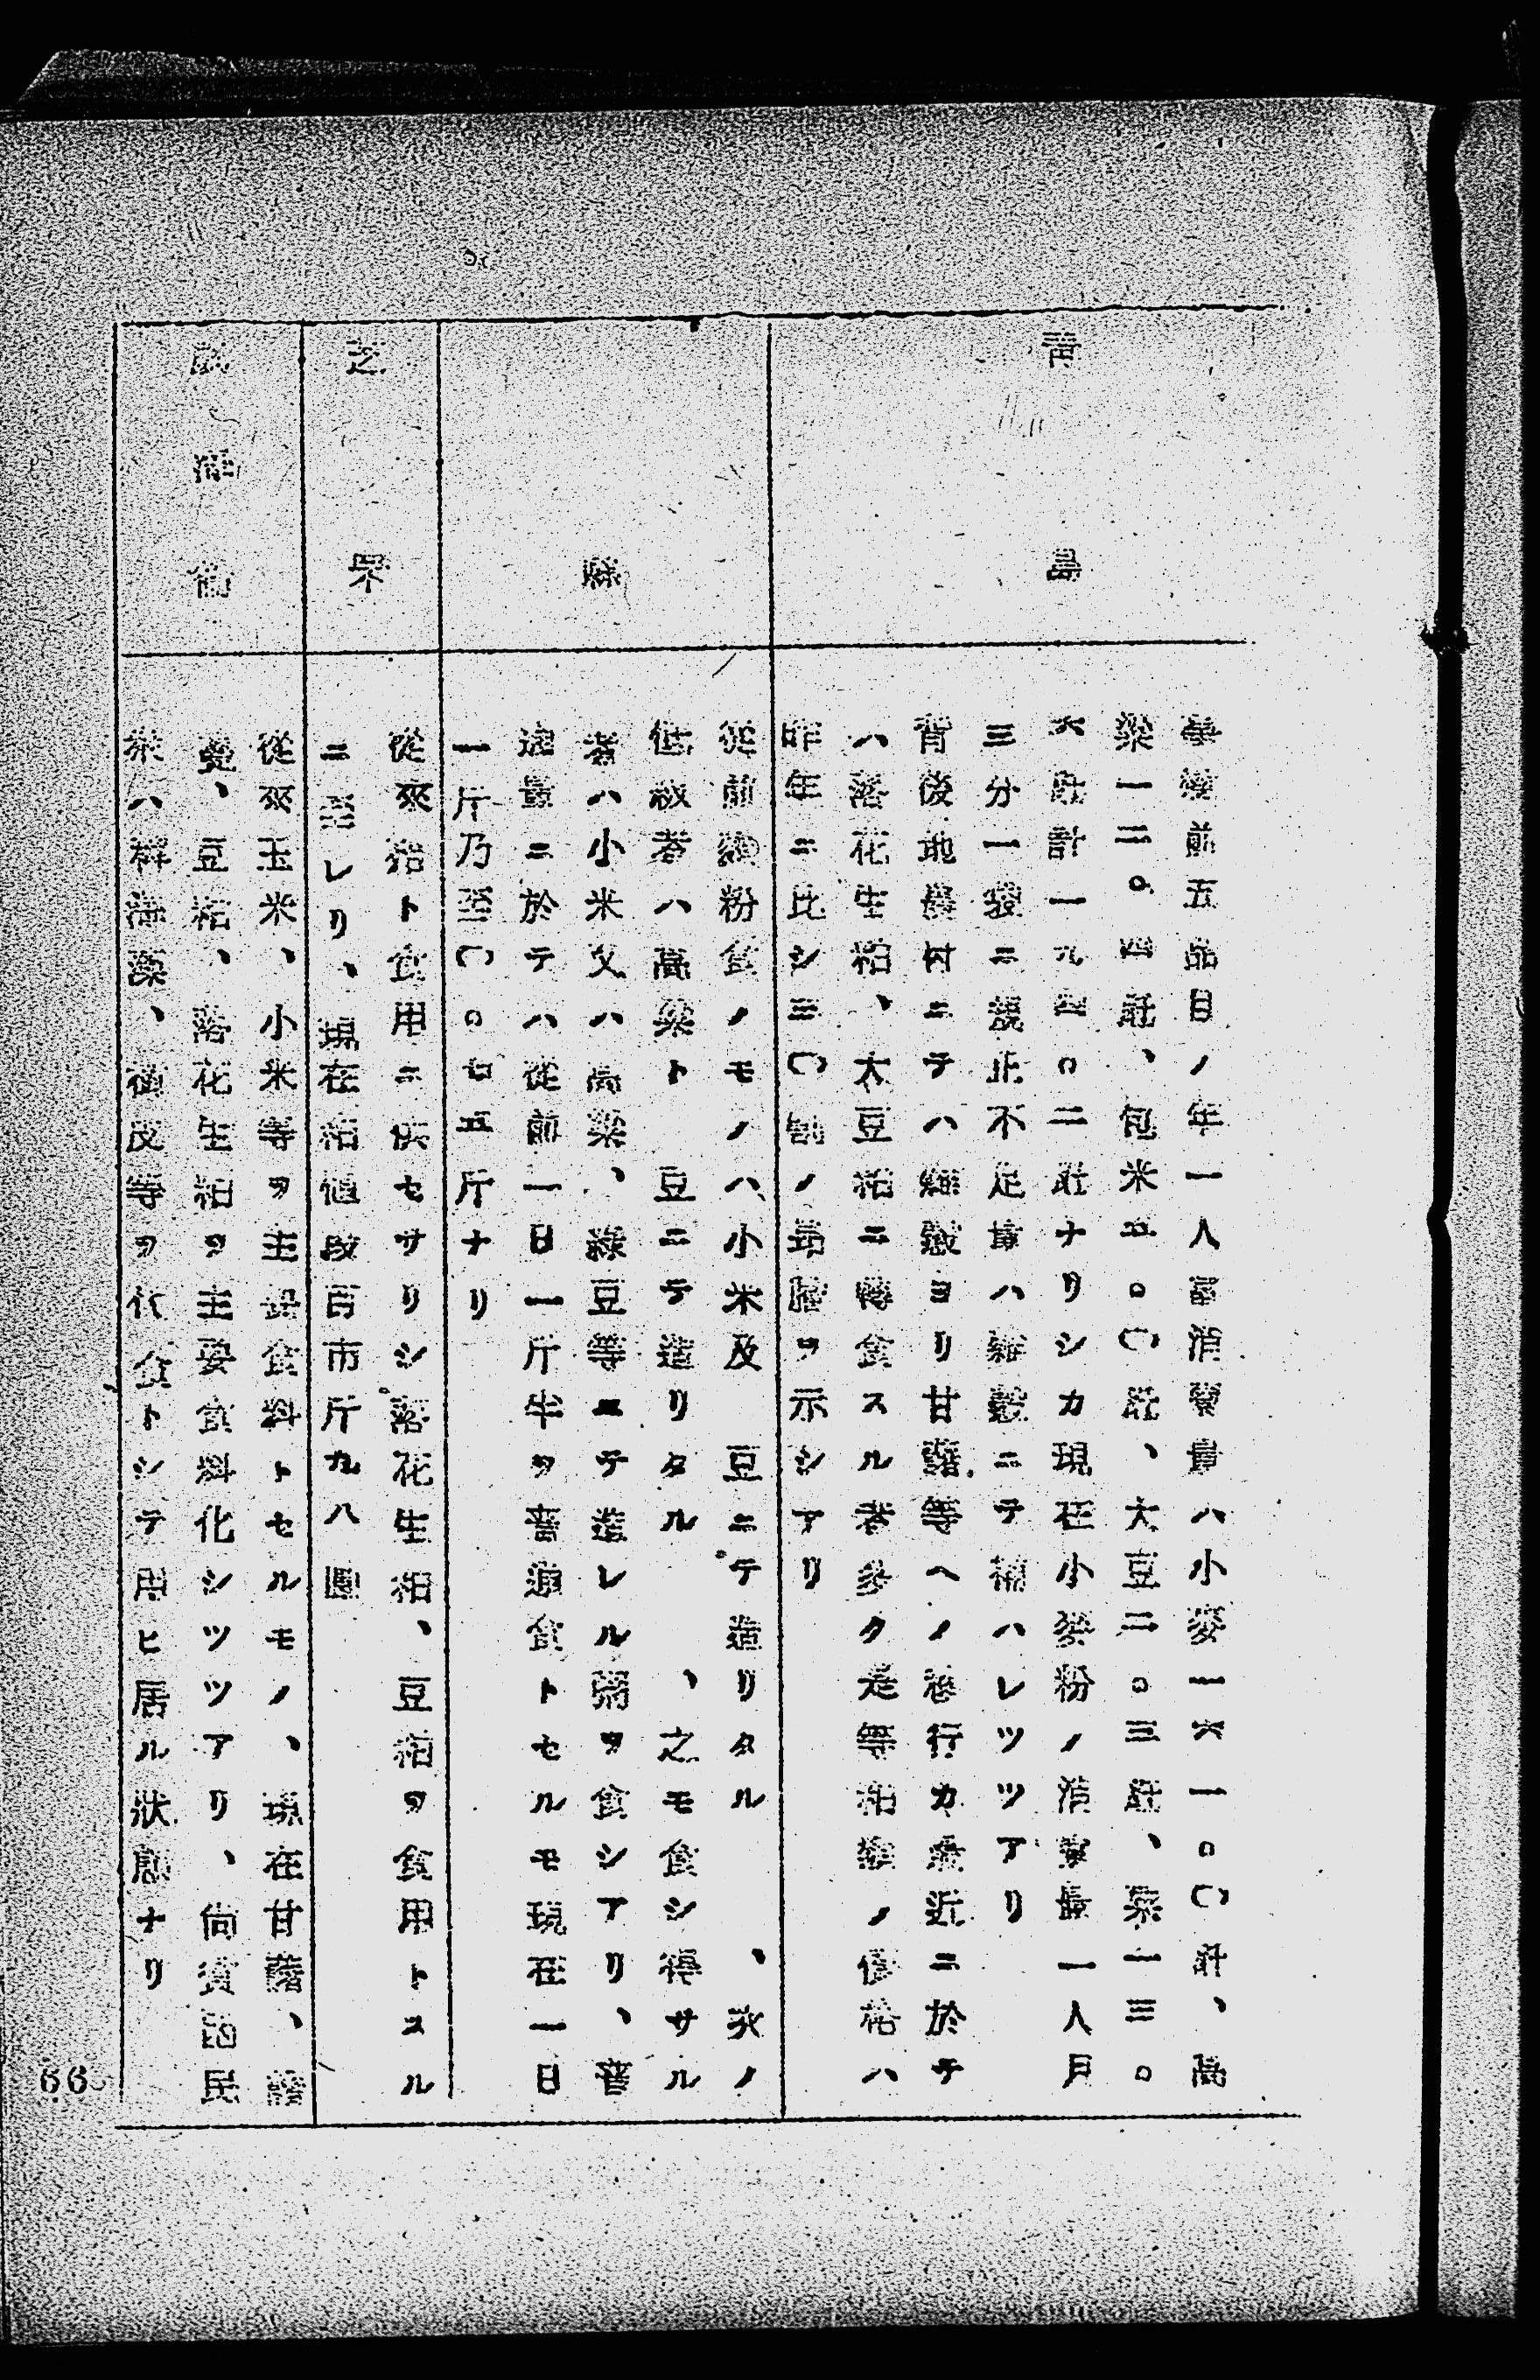 青島
事變前五品目ノ年一人當消費量ハ小麥一六一。〇瓩、高
粱一二。四瓩、包米五。〇瓩、大豆二。三瓩、粟一三。
六瓩計一九四。二瓩ナリシカ現在小麥粉ノ消費量一人月
三分一袋ニ設止不足量ハ雜穀ニテ補ハレツツアリ
背後地農村ニテハ雜穀ヨリ甘藷等ヘノ移行カ最近ニ於テ
ハ落花生粕、大豆粕ニ轉食スル者多ク是等粕類ノ價格ハ
昨年ニ比シ三〇割ノ昂騰ヲ示シアリ
縣
從前 粉食ノモノハ小米及 豆ニテ造リタル 、次ノ
低級者ハ高粱ト 豆ニテ造リタル 、之モ食シ得サル
者ハ小米又ハ高粱、綠豆等ニテ造レル粥ヲ食シアリ、普
通量ニ於テハ從前一日一斤半ヲ普通食トセルモ現在一日
一斤乃至〇。七五斤ナリ
芝罘
從來粕ト食用ニ供セサリシ落花生粕、豆粕ヲ食用トスル
ニ至レリ、現在粕値段百市斤九八圓
威海衞
從來玉米、小米等ヲ主 食料トセルモノ、現在甘藷、
、豆粕、落花生粕ヲ主要食料化シツツアリ、尙貧困民
衆ハ 海藻、 皮等ヲ代食トシテ用ヒ居ル狀態ナリ
66